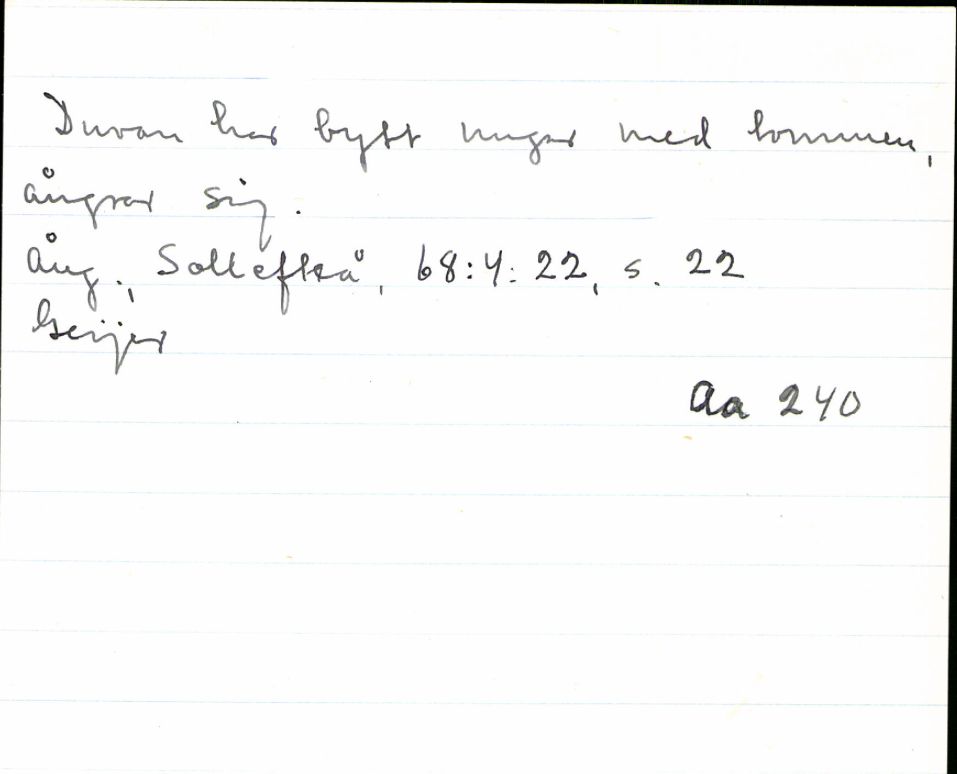 Duvan har bytt ungar med lommen,
ångrar sig.
Ång., Sollefteå, 68:4:22, s. 22
Geijer
Aa 240